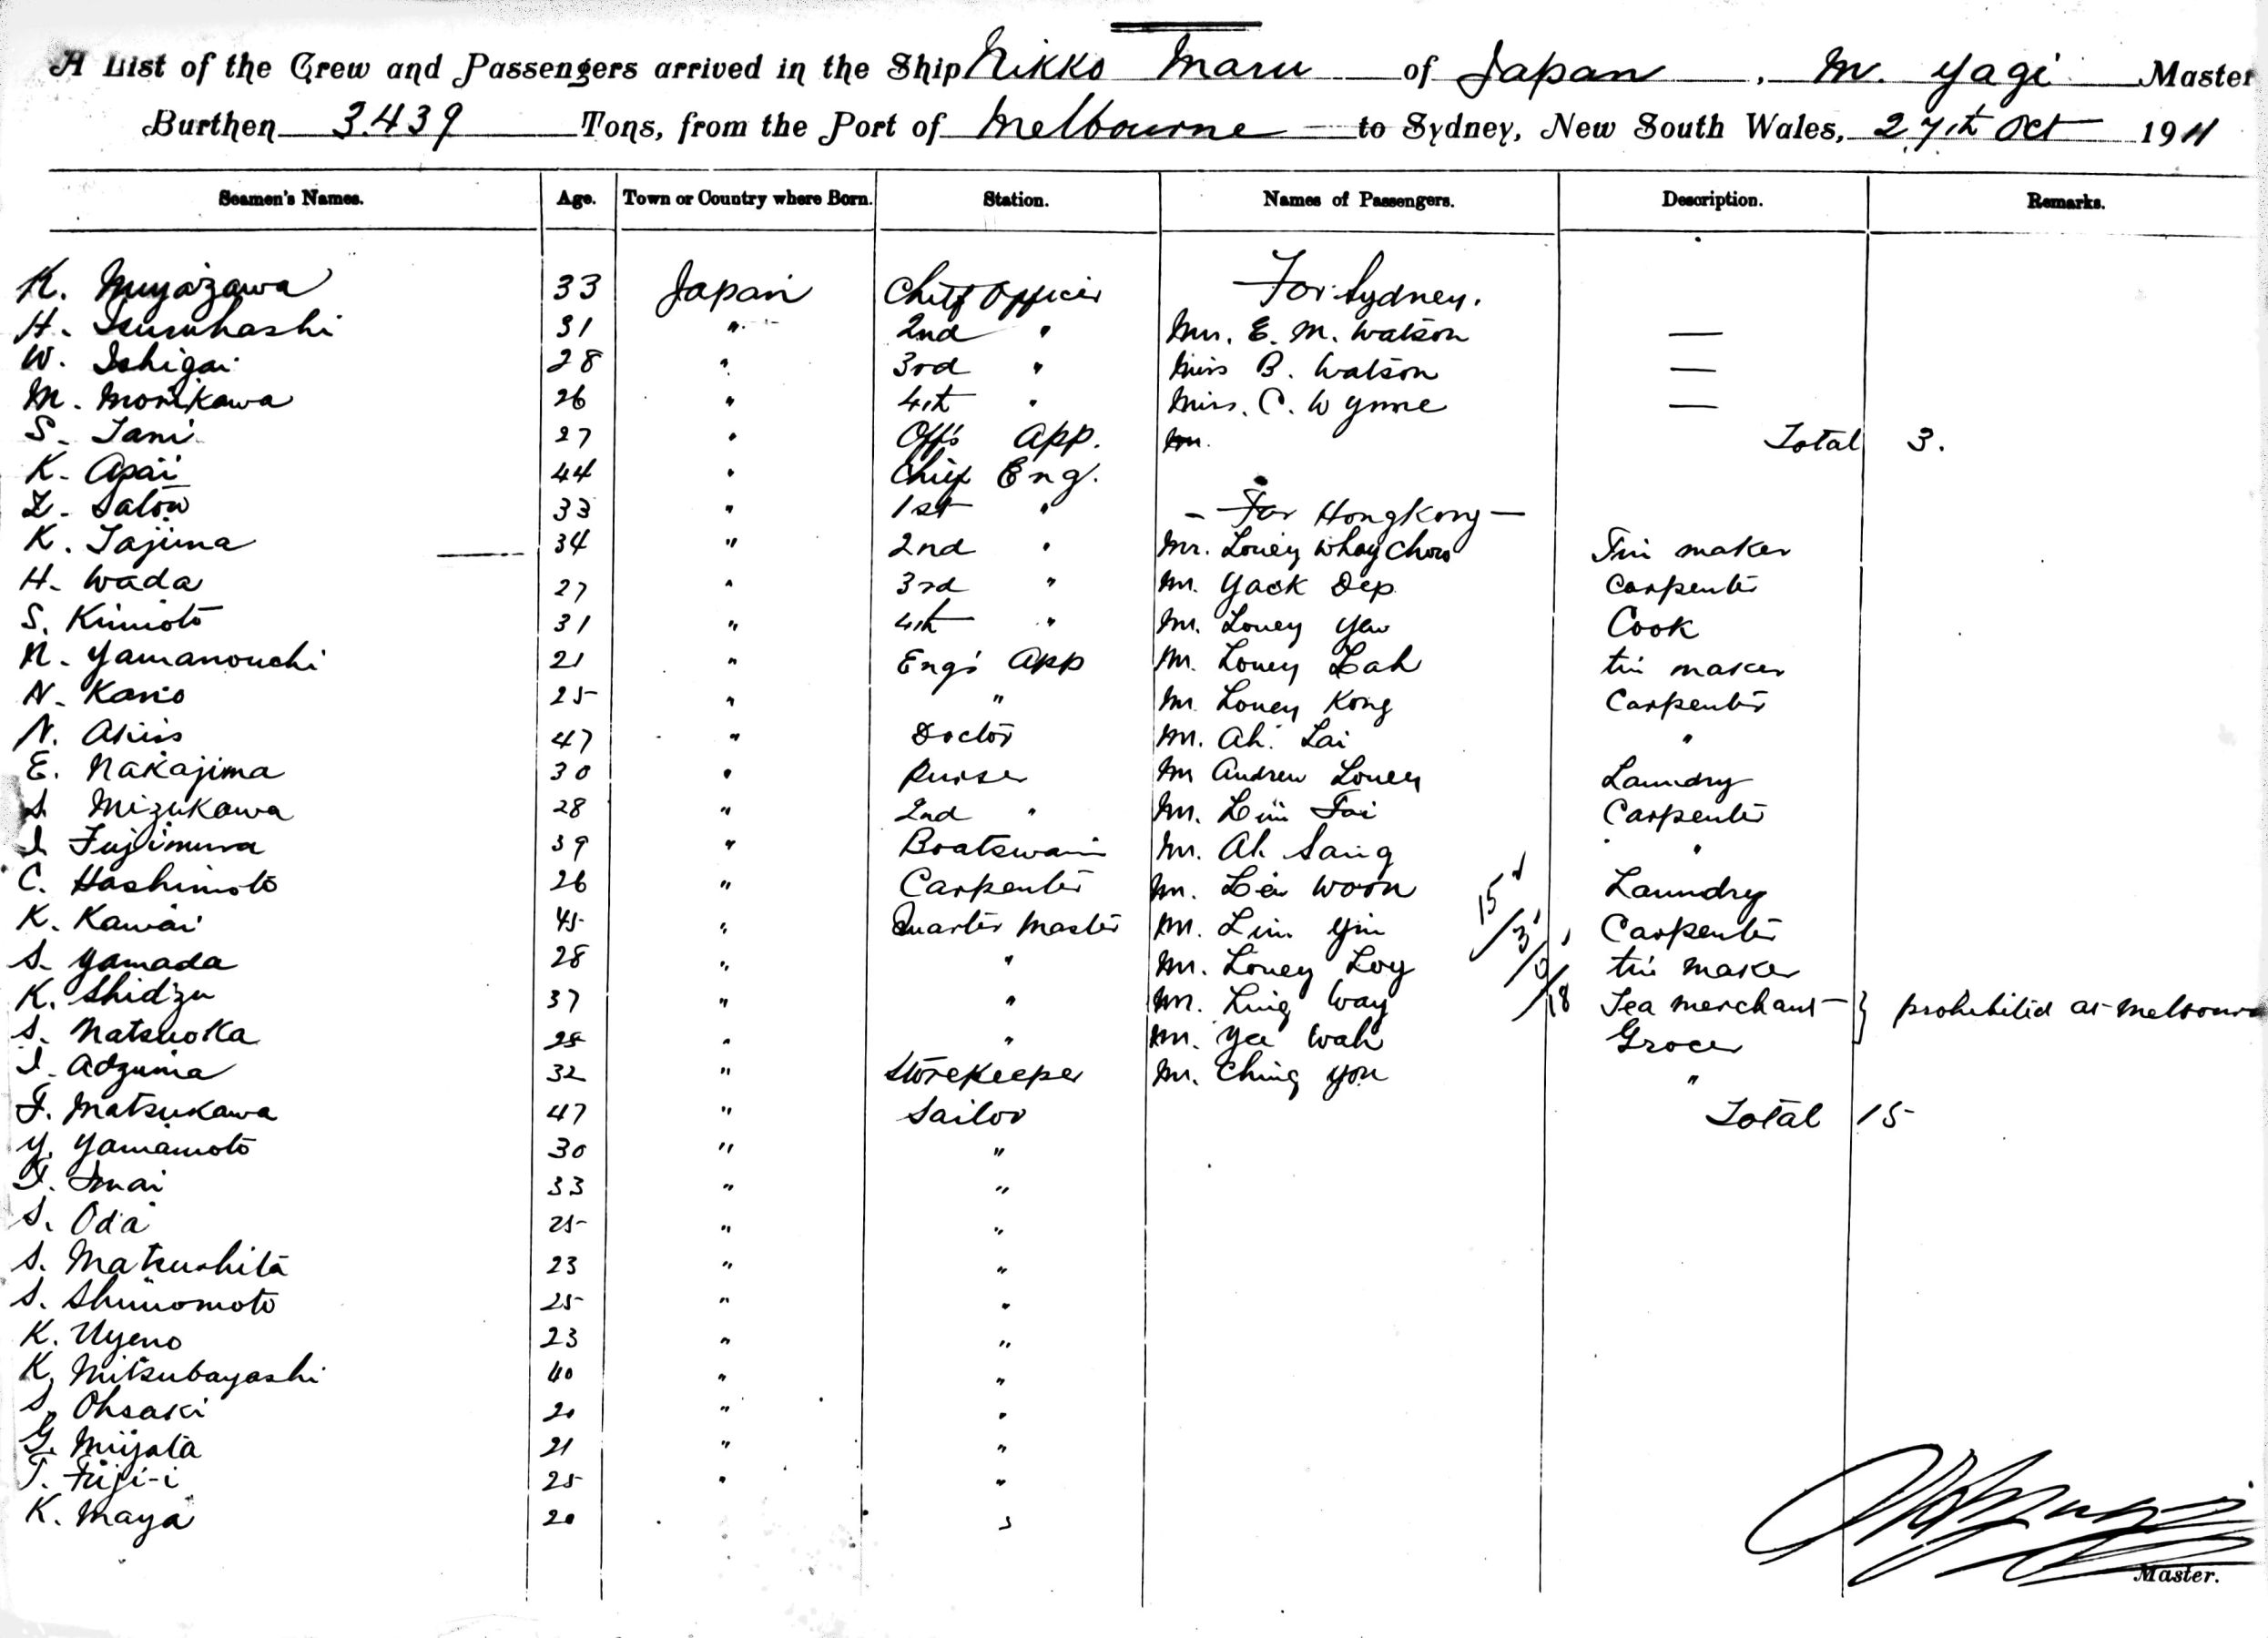 A List of the Crew and Passengers arrived in the Ship Nikko Maru of Japan, M. Yagi Master
Burthen 3439 Tons, from the Port of Melbourne to Sydney, New South Wales, 27th Oct 1911
Seamen's Names. Age. Town or Country where Born. Station. Names of Passengers. Description. Remarks.
K. Miyazawa 33 Japan Chief Officer For Sydney.
H. Tsuruhashi 31 " 2nd " Mrs. E. M. Watson —
W. Ishigai 28 " 3rd " Miss B. Watson —
M. Morikawa 26 " 4th " Miss. C. Wynne —
S. Tani 27 " Off's App. Total 3.
K. Asai 44 " Chief Eng.
Z. Satow 33 " 1st " — For Hongkong —
K. Tajima 34 " 2nd " Mr. Louey Whay Chow Tin maker
H. Wada 27 " 3rd " Mr. Yack Dep Carpenter
S. Kimoto 31 " 4th " Mr. Louey Yew Cook
N. Yamanouchi 21 " Eng's App Mr. Louey Lah tin maker
N. Kano 25 " " Mr. Louey Kong Carpenter
N. 47 " Doctor Mr. Ah. Lai "
E. Nakajima 30 " Purser Mr Andrew Louey Laundry
S. Mizukawa 28 " 2nd " Mr. Lim Fai Carpenter
I. Fujimura 39 " Boatswain Mr. Ah. Sang "
C. Hashimoto 26 " Carpenter Mr. Woon Laundry
K. Kawai 45 " Quarter Master Mr. Lim Yin Carpenter
S. Yamada 28 " " Mr. Louey Loy tin maker
K. Shidzu 37 " " Mr. King Way Tea merchant } prohibited at Melbourne
S. Natsuoka 28 " " Mr. Yee Wah Grocer
I. Adzuma 32 " Storekeeper Mr. Ching You "
15 / 3 / 0 / 18
F. Matsukawa 47 " Sailor Total 15
Y. Yamamoto 30 " "
T. Imai 33 " "
S. Oda 25 " "
S. Matsushita 23 " "
S. Shimomoto 25 " "
K. Uyeno 23 " "
K. Mitsubayashi 40 " "
S. Ohsaki 20 " "
G. Miyata 21 " "
T. Fuji-i 25 " "
K. Maya 20 " "
Master.